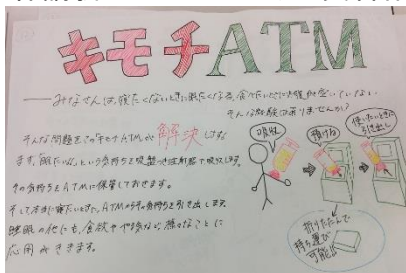 キモチATM
みなさんは、寝たくないときに眠たくなる、食べたいときにお腹が空いていない
そんな経験はありませんか?
そんな問題をこのキモチATMが解決します
ます。眠たいな、という気持ちを吸盤や注射器で吸収します。
その気持ちをATMに保管しておきます。
そして本当に寝たいときに、ATMからその気持ちを引き出します。
睡眠の他にも、食欲ややる気など、様々なことに
応用ができます。
吸収
預ける
使いたいときに
引き出し
折りたたんで
持ち運び
可能!!